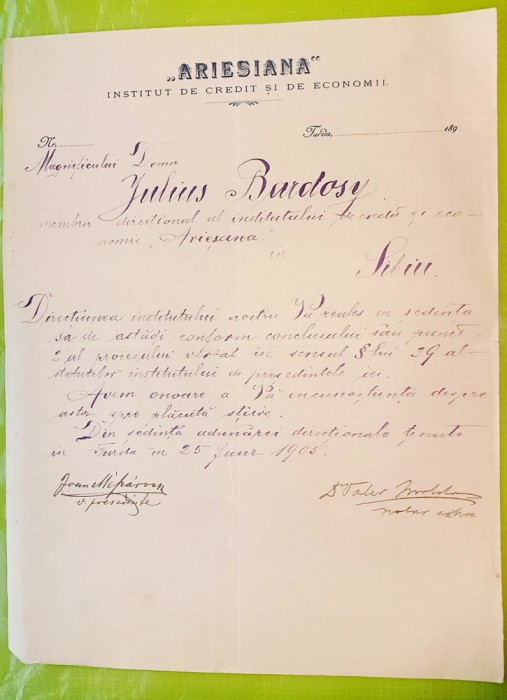 „ARIESIANA“
INSTITUT DE CREDIT ȘI DE ECONOMII.
Nr.
Turda, 189
Magnificului Domn
Julius Bardosy
membru direcțional al institutului de credit și eco-
nomie „Arieșana“
in
Sibiu.
Direcțiunea institutului nostru Vă reales in sedința
sa de astădi conform conclusului său punct
2 al procesului verbal in sensul § lui 39 al
statutelor institutului de presedintele
Avem onoare a Vă incunoștunța despre
spre plăcută știre.
Din sedința adunărei direcționale ținute
in Turda in 25 Janr 1905.
Joan
v. președinte
Dr Valer
notar